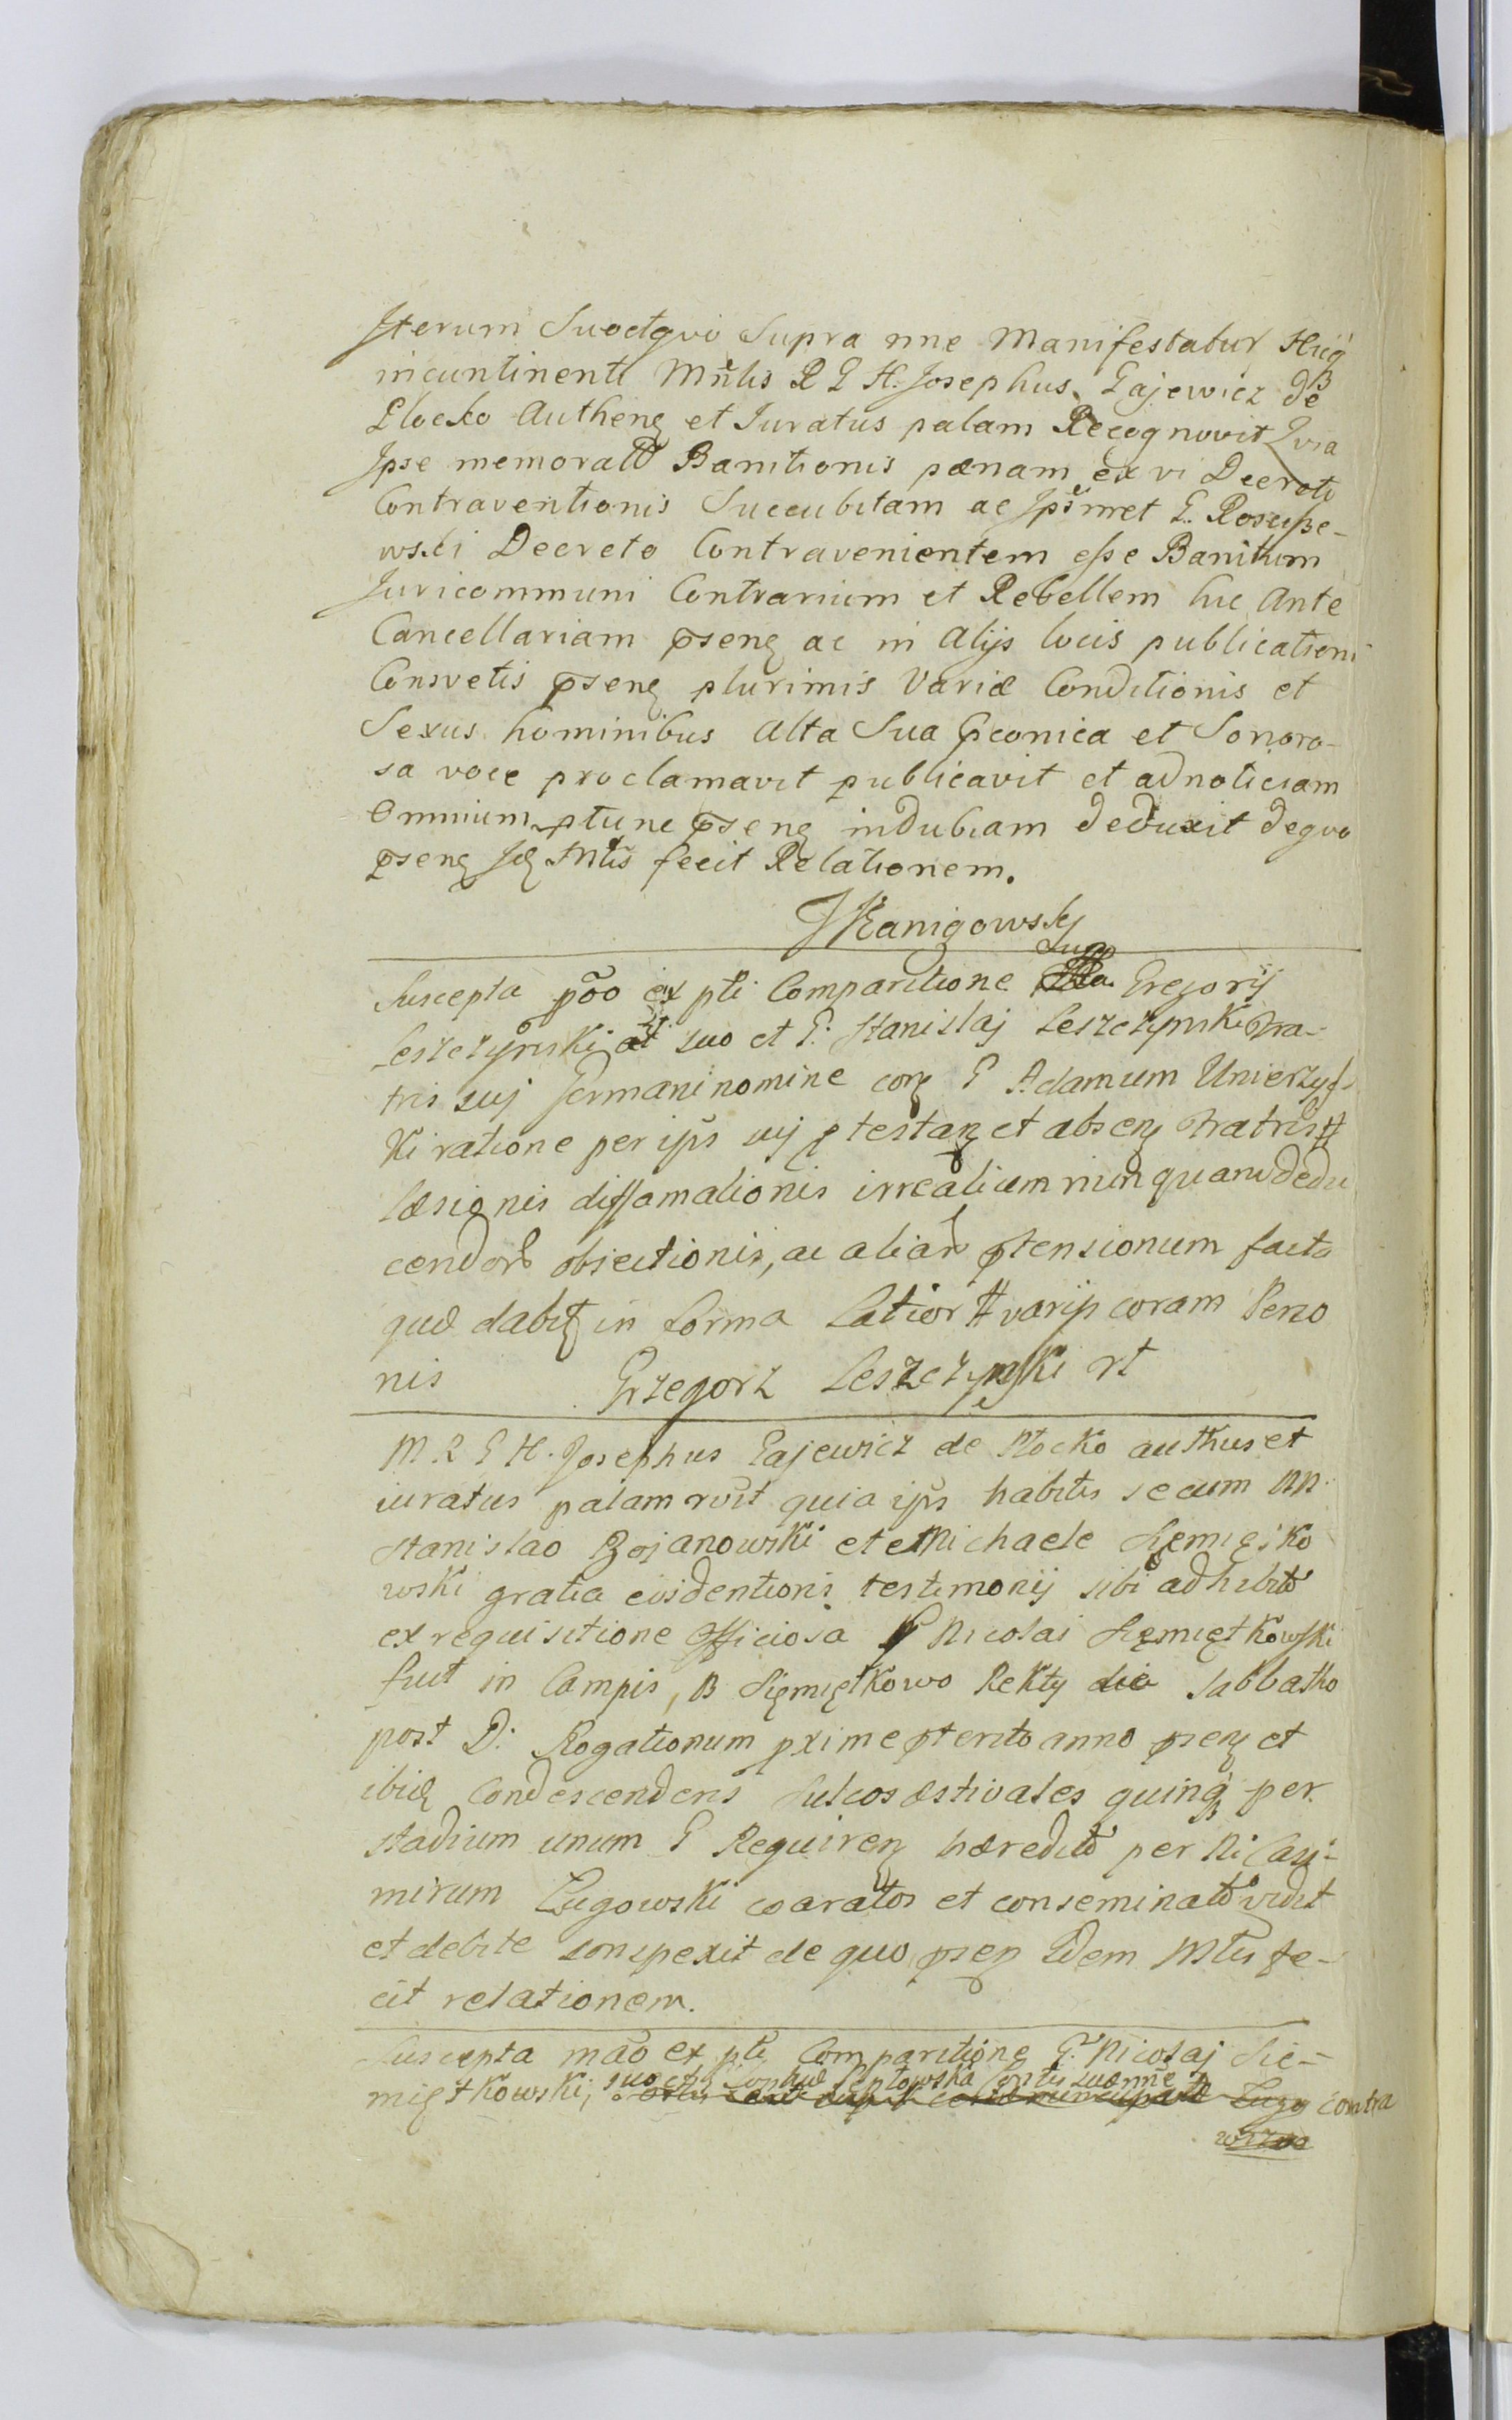 Iterum Suoctqvo Supra nne Manifestatur Hicq
incuntinenti Mnlis R G H. Josephus Gajewicz de
Plocko Autheng et Juratus palam Recognovit Qvia
Ipse memorato Banitionis pænam ex vi Decreti
Contraventionis Succubitam ac Ipsmet G. Rosciſze-
wski Decreto Contravenientem eſse Banitum
Juricommuni Contrarium et Rebellem hic Ante
Cancellariam pseng ac in alijs locis publicationi
Consvetis pseng plurimis Variæ Conditionis et
Sexus hominibus alta Sua pconica et Sonoro-
sa voce proclamavit publicavit et adnoticiam
Omnium ptunc pseng indubiam deduxit deqvo
pseng Id Mtis fecit Relationem.
JKanigowsky
Suscepta põo ex pti Comparitione Gregorij
Leszczynski at suo et G. Stanislaj Leszczynski Fra-
tris suj Germani nomine con G Adamum Unierzys-
ki ratione per ips uj ptestan et absen Fratris #
læsionis diffamationis irrealium nunquam dedu
cendor obiectionis, ac aliar ptensionum facta
quæ dabit in forma Latior # varijs coram Perso
nis Grzegorz Leszczynski rt
M R G H. Josephus Gajewicz de Płocko authus et
iuratus palam rvit quia ips habitis secum NN
Stanislao Bojanowski et Michaele Sięmięsko
wski gratia evidentioris testimonij sibi adhibit
ex requisitione Officiosa G Nicolai Sięmiętkowski
fuit in Campis, B Sięmiętkowo Rekty die Sabbatho
post D: Rogationum pxime pterito anno psen et
ibid Condescendens Sulcos æstivales quinq per
stadium unum G Requiren hæredit per N Casi-
mirum Ługowski coaratos et conseminato vidit
et debite conspexit de quo psen Idem Mtis fe-
cit relationem.
Suscepta mão ex pti Comparitione G. Nicolaj Się-
suo et Septowska
miętkowski, contra